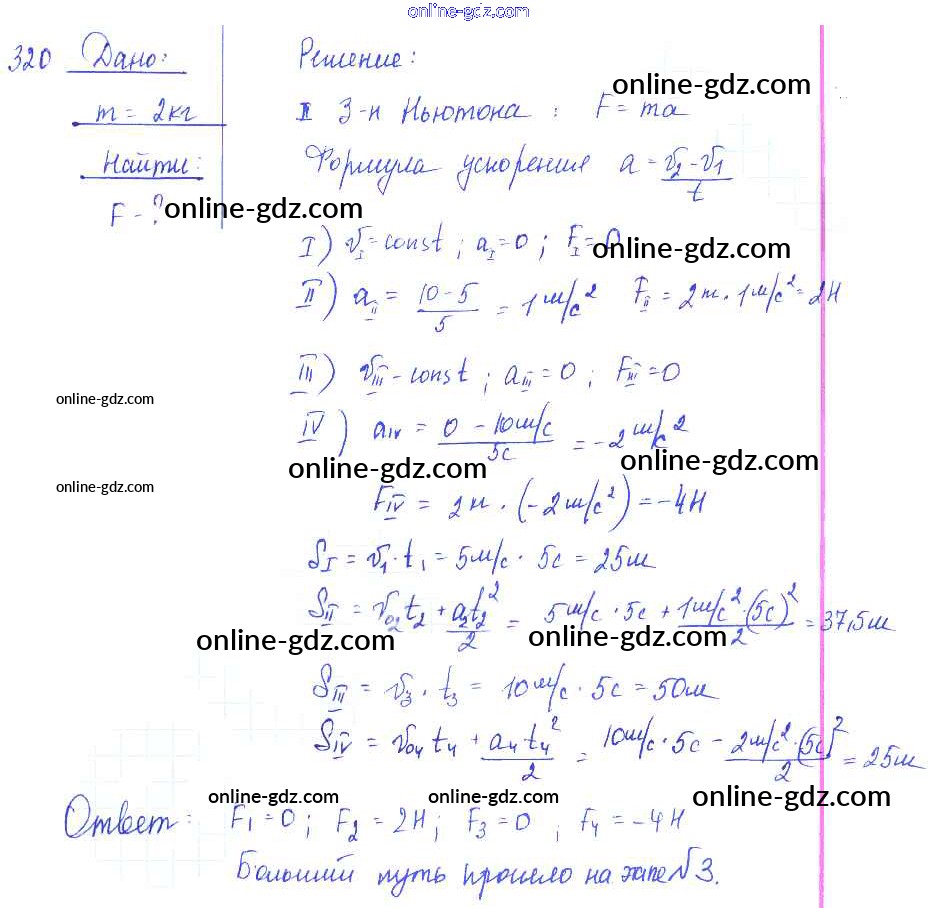 online-gdz.com
320 Дано: Решение:
online-gdz.com
m = 2кг II З-н Ньютона : F = ma
Найти: Формула ускорения a = (v₂-v₁)/t
F - ? online-gdz.com
I) v_I = const ; a_I = 0 ; F_I = 0
online-gdz.com
II) a_II = (10-5)/5 = 1м/с² F_II = 2кг · 1м/с² = 2Н
III) v_III - const ; a_III = 0 ; F_III = 0
online-gdz.com
IV) a_IV = (0 - 10м/с)/5с = -2 м/с²
online-gdz.com online-gdz.com
online-gdz.com
F_IV = 2кг · (-2м/с²) = -4Н
S_I = v₁ · t₁ = 5м/с · 5с = 25м
S_II = v₀₂t₂ + a₂t₂²/2 = 5м/с · 5с + 1м/с² · (5с)²/2 = 37,5м
online-gdz.com online-gdz.com
S_III = v₃ · t₃ = 10м/с · 5с = 50м
S_IV = v₀₄t₄ + a₄t₄²/2 = 10м/с · 5с - 2м/с² · (5с)²/2 = 25м
online-gdz.com online-gdz.com online-gdz.com
Ответ: F₁ = 0 ; F₂ = 2Н ; F₃ = 0 , F₄ = -4Н
Больший путь прошло на этапе №3.